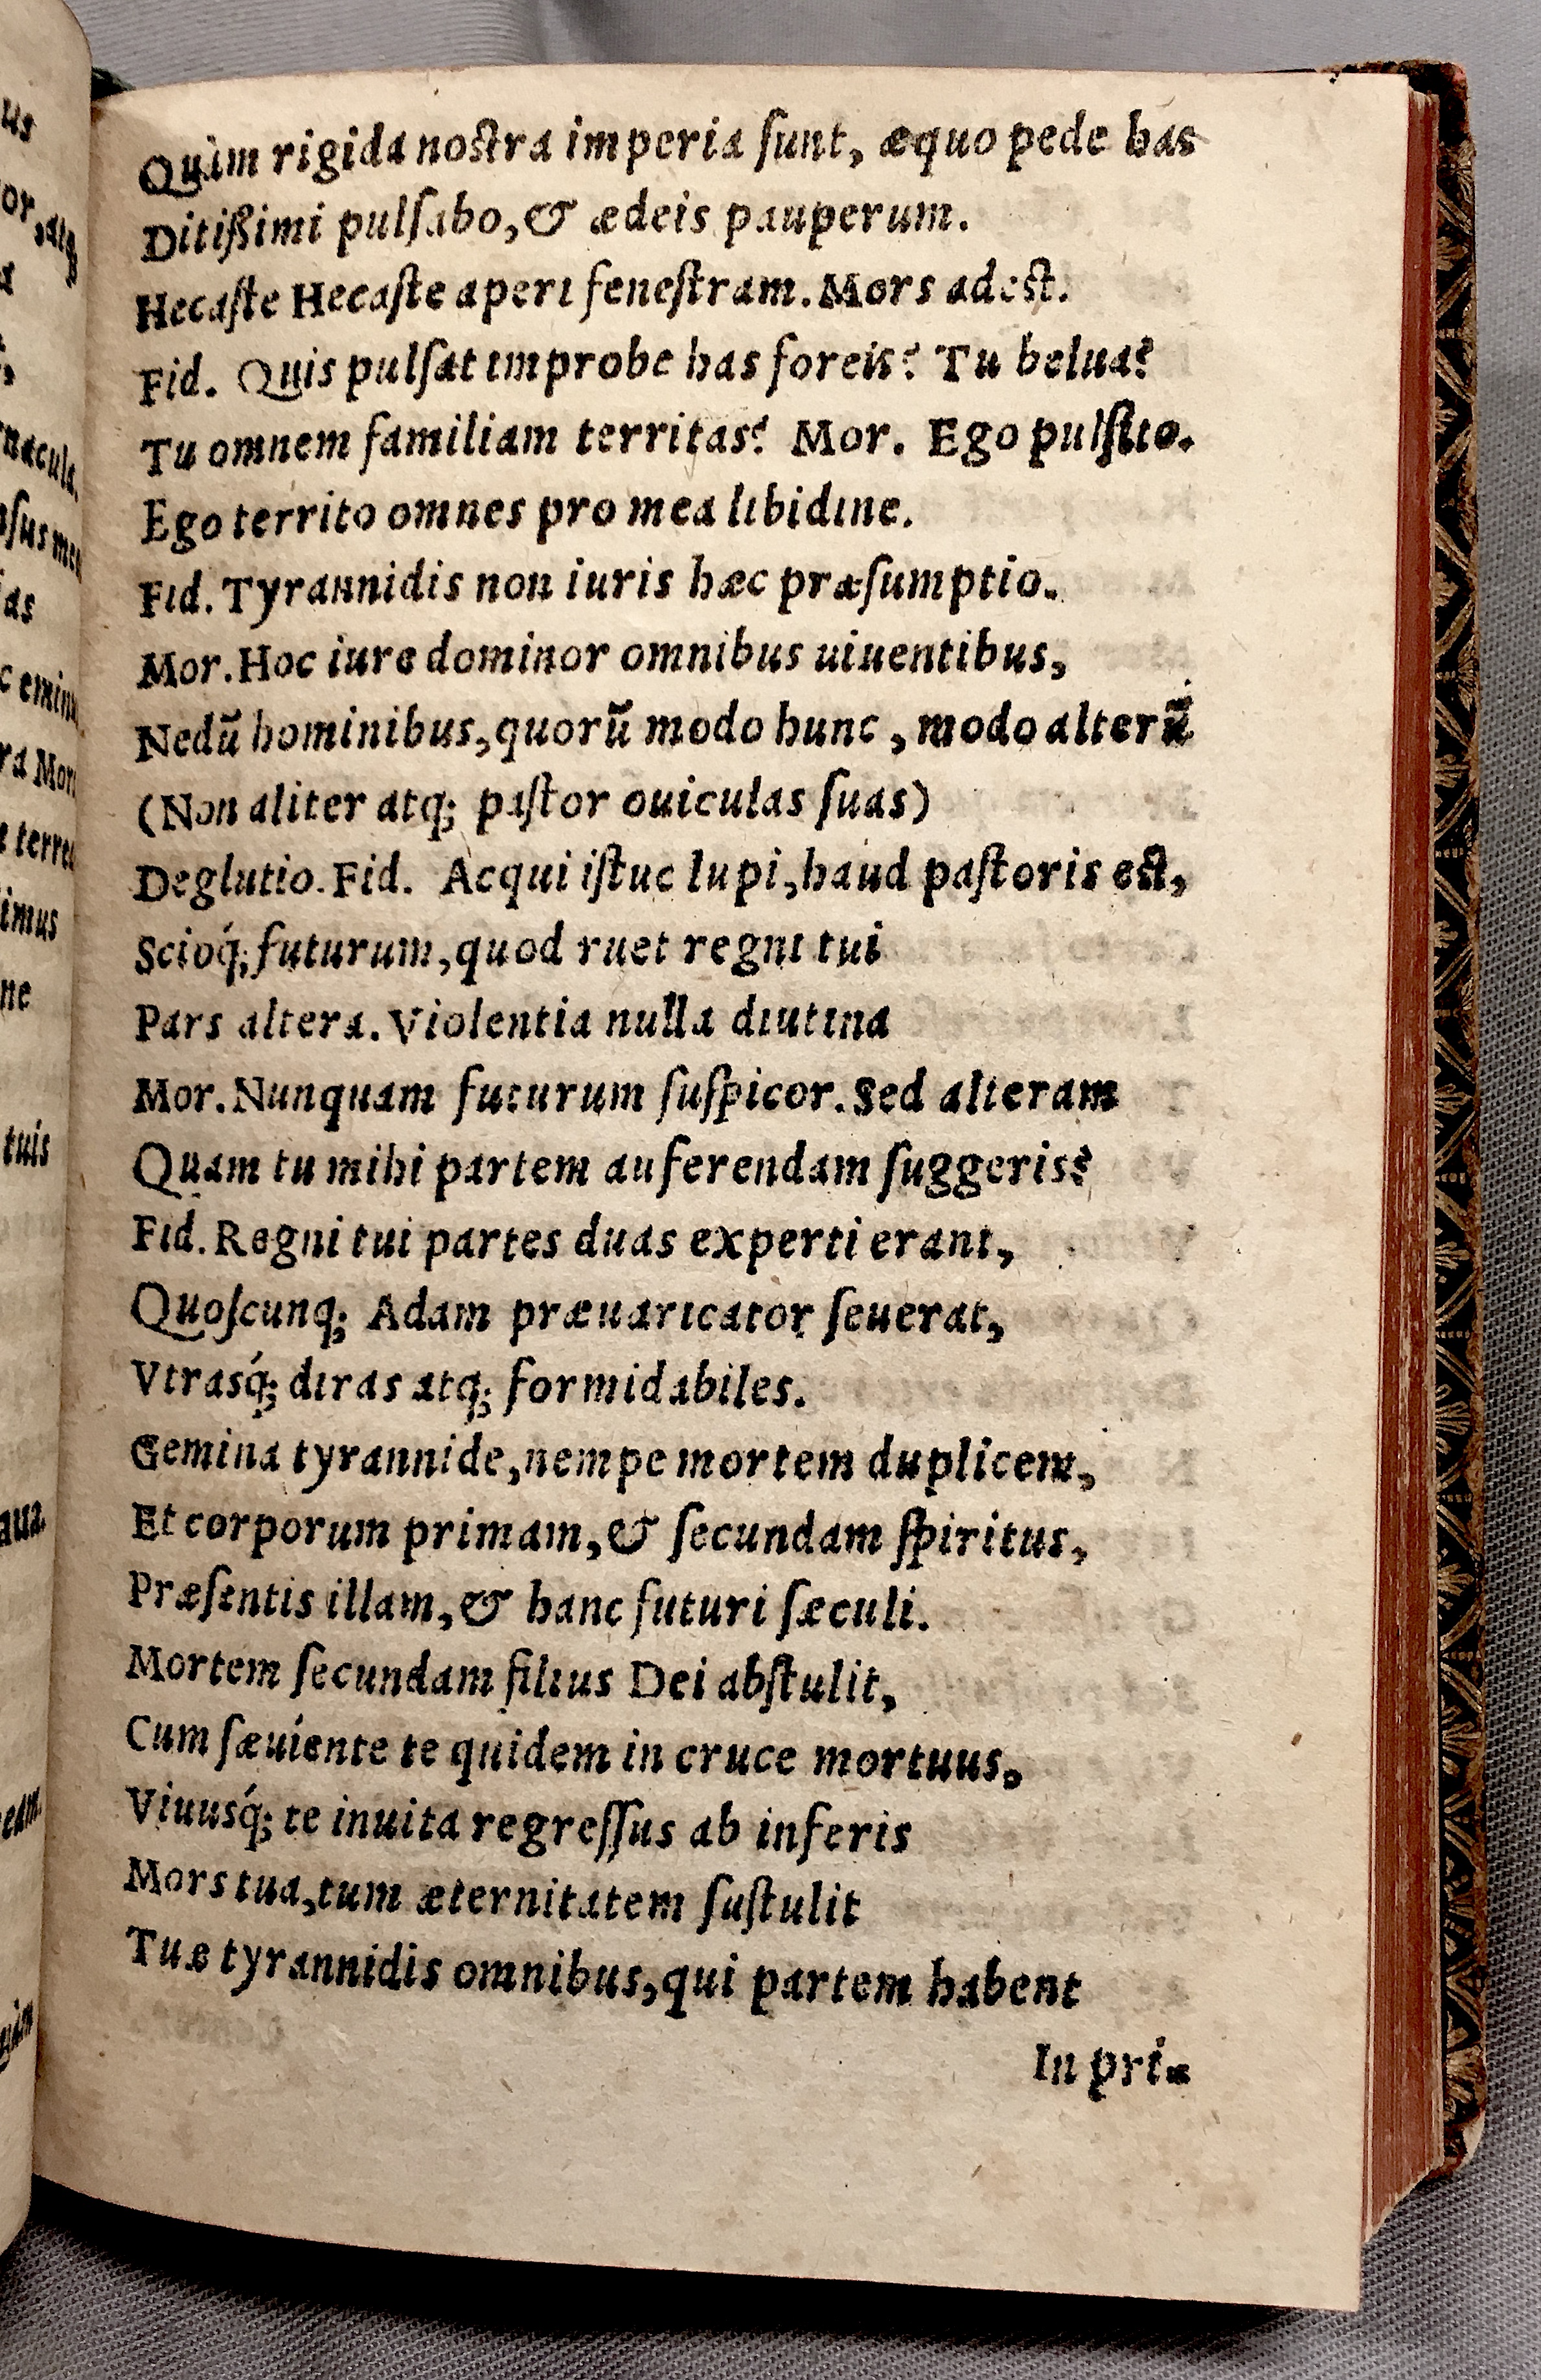 Quàm rigida nostra imperia ſunt, æquo pede has
Ditißimi pulſabo, & ædeis pauperum.
Hecaſte Hecaſte aperi feneſtram. Mors adest.
Fid. Quis pulſat improbe has foreis? Tu belua?
Tu omnem familiam territas? Mor. Ego pulſito.
Ego territo omnes pro mea libidine.
Fid. Tyrannidis non iuris hæc præſumptio.
Mor. Hoc iure dominor omnibus uiuentibus,
Nedū hominibus, quorū modo hunc, modo alterū
(Non aliter atq; paſtor ouiculas ſuas)
Deglutio. Fid. Acqui iſtuc lupi, haud paſtoris est,
Scioq́; futurum, quod ruet regni tui
Pars altera. Violentia nulla diutina
Mor. Nunquam futurum ſuſpicor. Sed alteram
Quam tu mihi partem auferendam ſuggeris?
Fid. Regni tui partes duas experti erant,
Quoſcunq; Adam præuaricator ſeuerat,
Vtrasq́; diras atq; formidabiles.
Gemina tyrannide, nempe mortem duplicem,
Et corporum primam, & ſecundam ſpiritus,
Præſentis illam, & hanc futuri ſæculi.
Mortem ſecundam filius Dei abſtulit,
Cum ſæuiente te quidem in cruce mortuus,
Viuusq́; te inuita regreſſus ab inferis
Mors tua, tum æternitatem ſuſtulit
Tuæ tyrannidis omnibus, qui partem habent
In pri-